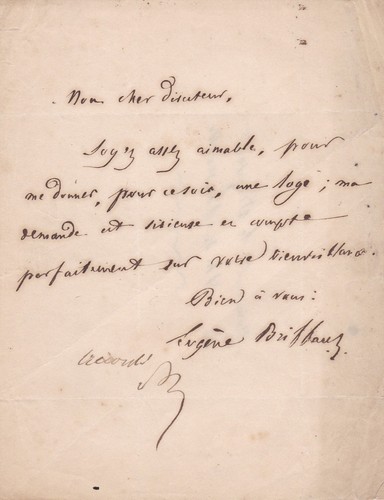 Mon cher directeur,
Soyez assez aimable, pour
me donner, pour ce soir, une loge ; ma
demande est sérieuse et compte
parfaitement sur votre bienveillance.
Bien à vous :
Eugène Briffault.
accordé